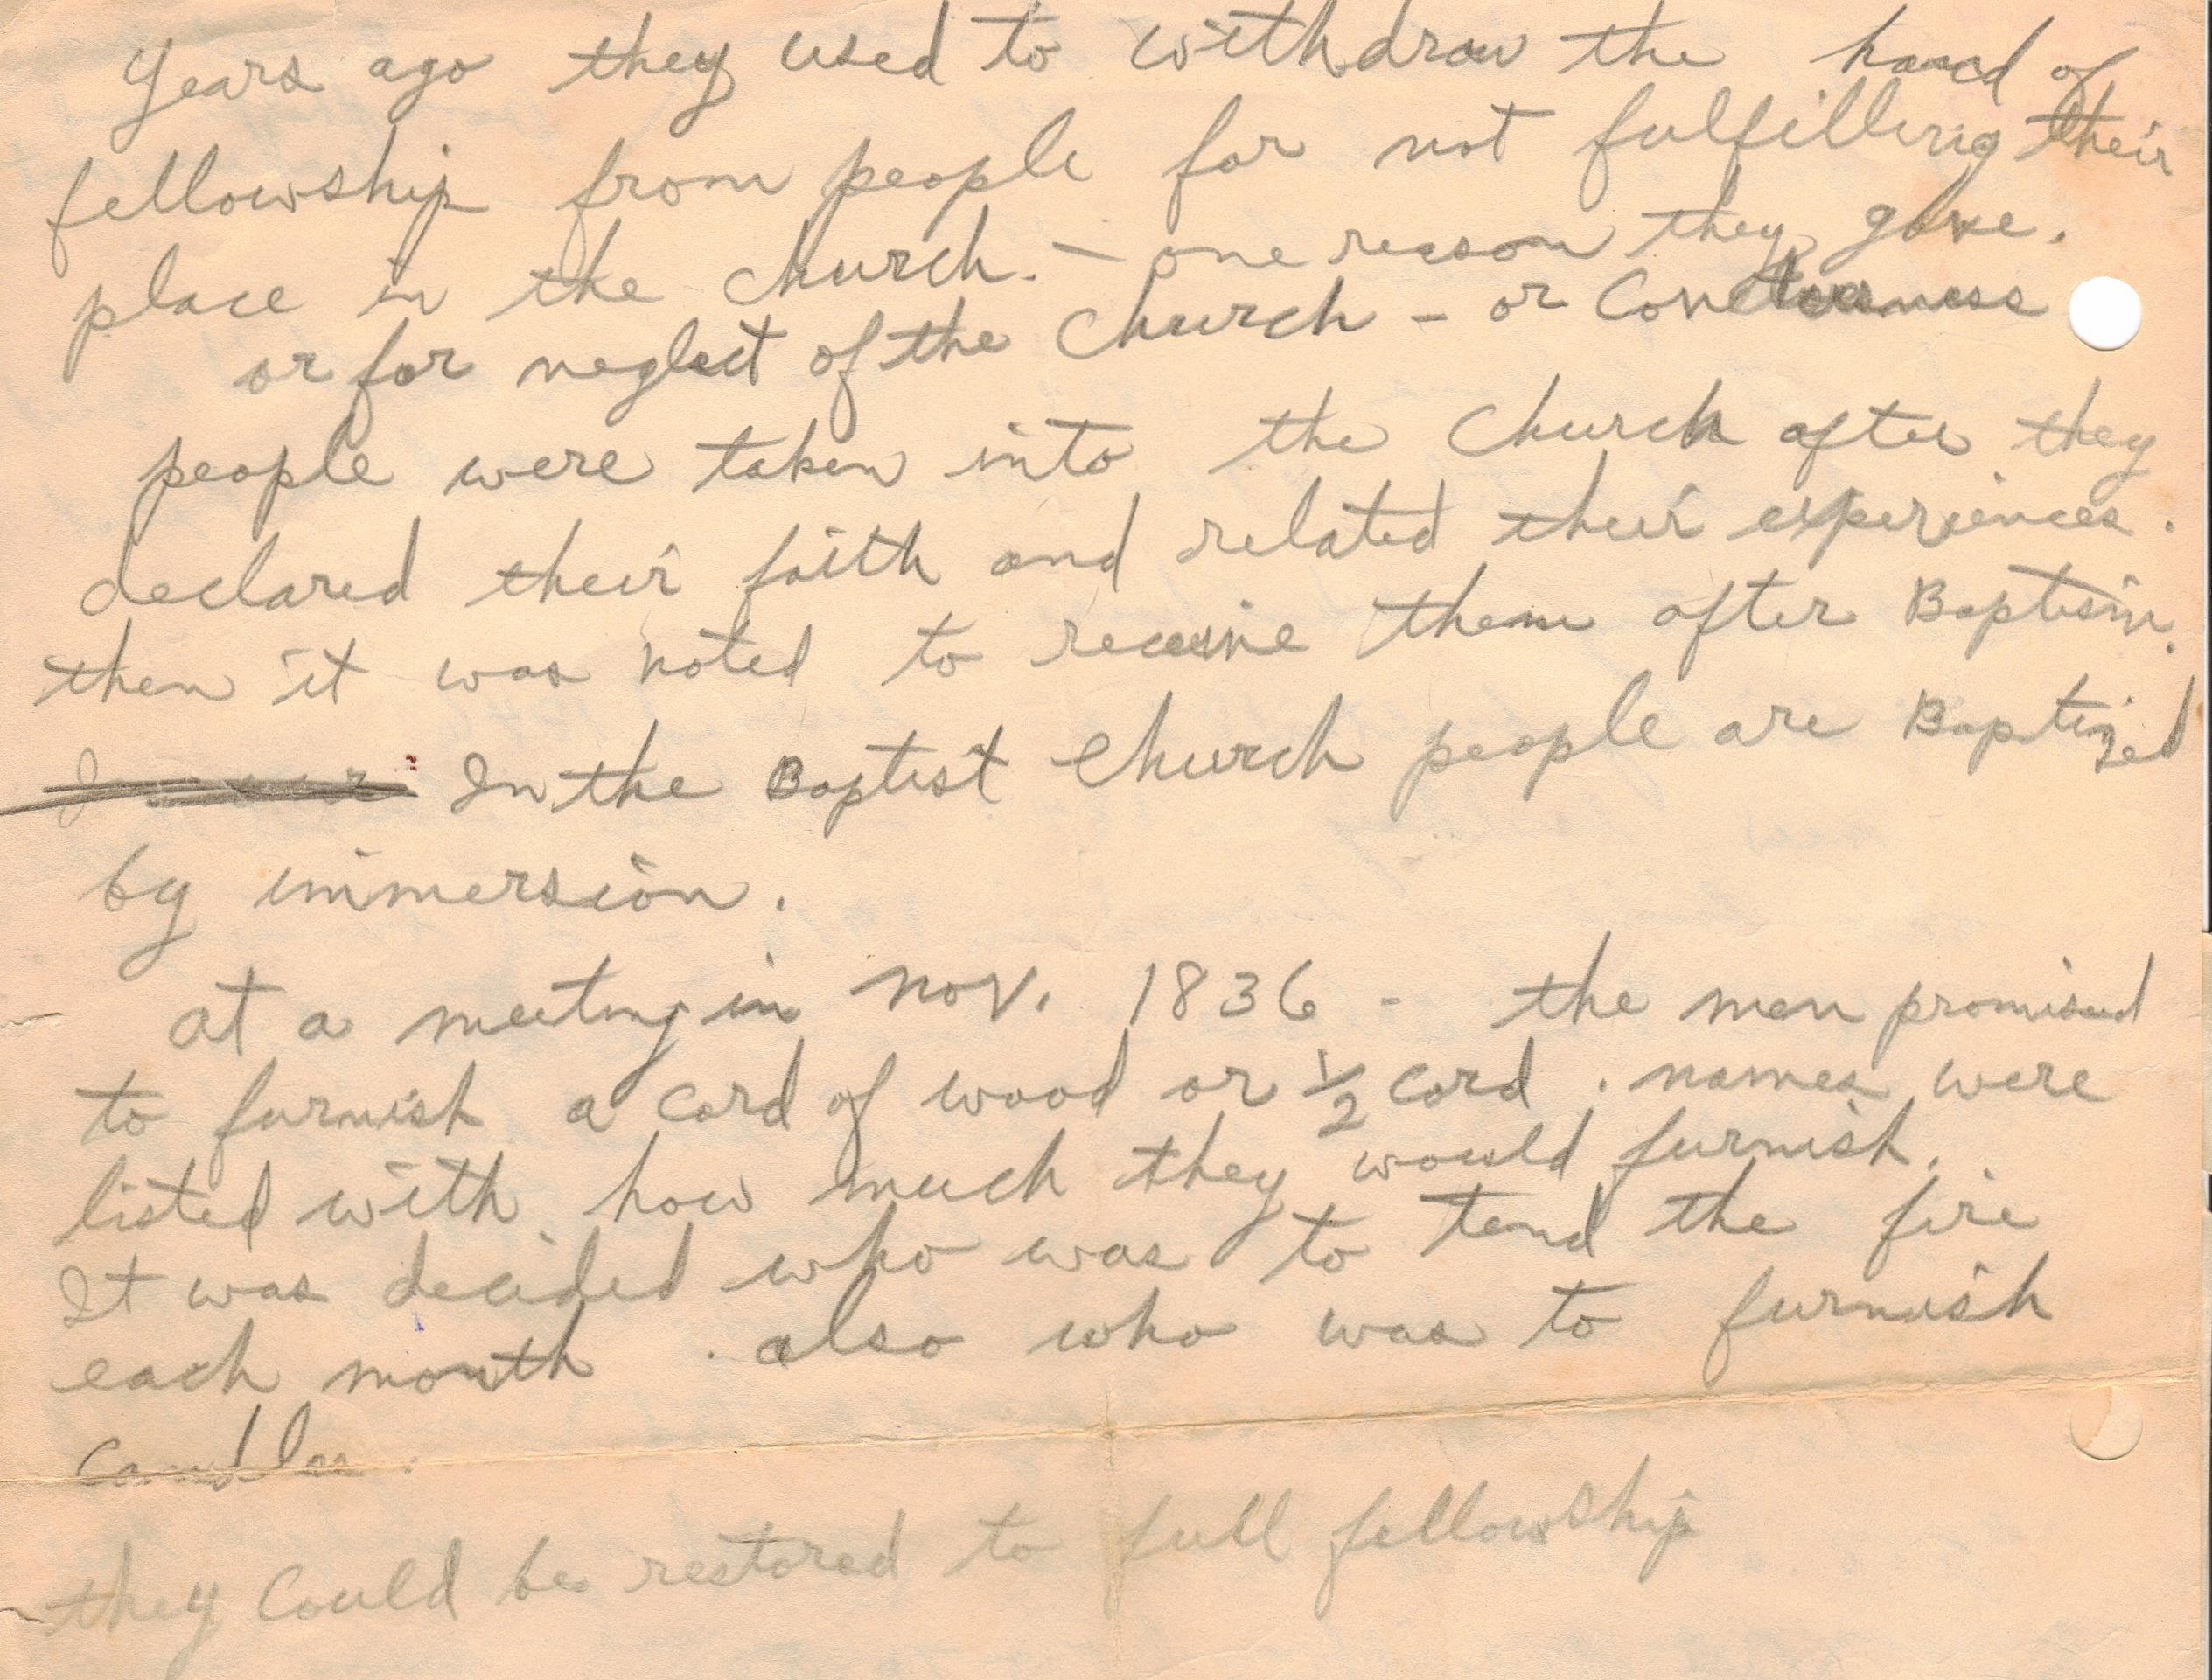 Years ago they used to withdraw the hand of
fellowship from people for not fulfilling their
place in the church. – one reason they gave.
or for neglect of the church – or Coveteousness
people were taken into the church after they
declared their faith and related their experiences.
then it was noted to receive them after Baptism.
In the Baptist Church people are Baptized
by immersion.
at a meeting in Nov. 1836 - the men promised
to furnish a cord of wood or 1/2 cord. names were
listed with how much they would furnish.
It was decided who was to tend the fire
each month. also who was to furnish
Candles.
they could be restored to full fellowship